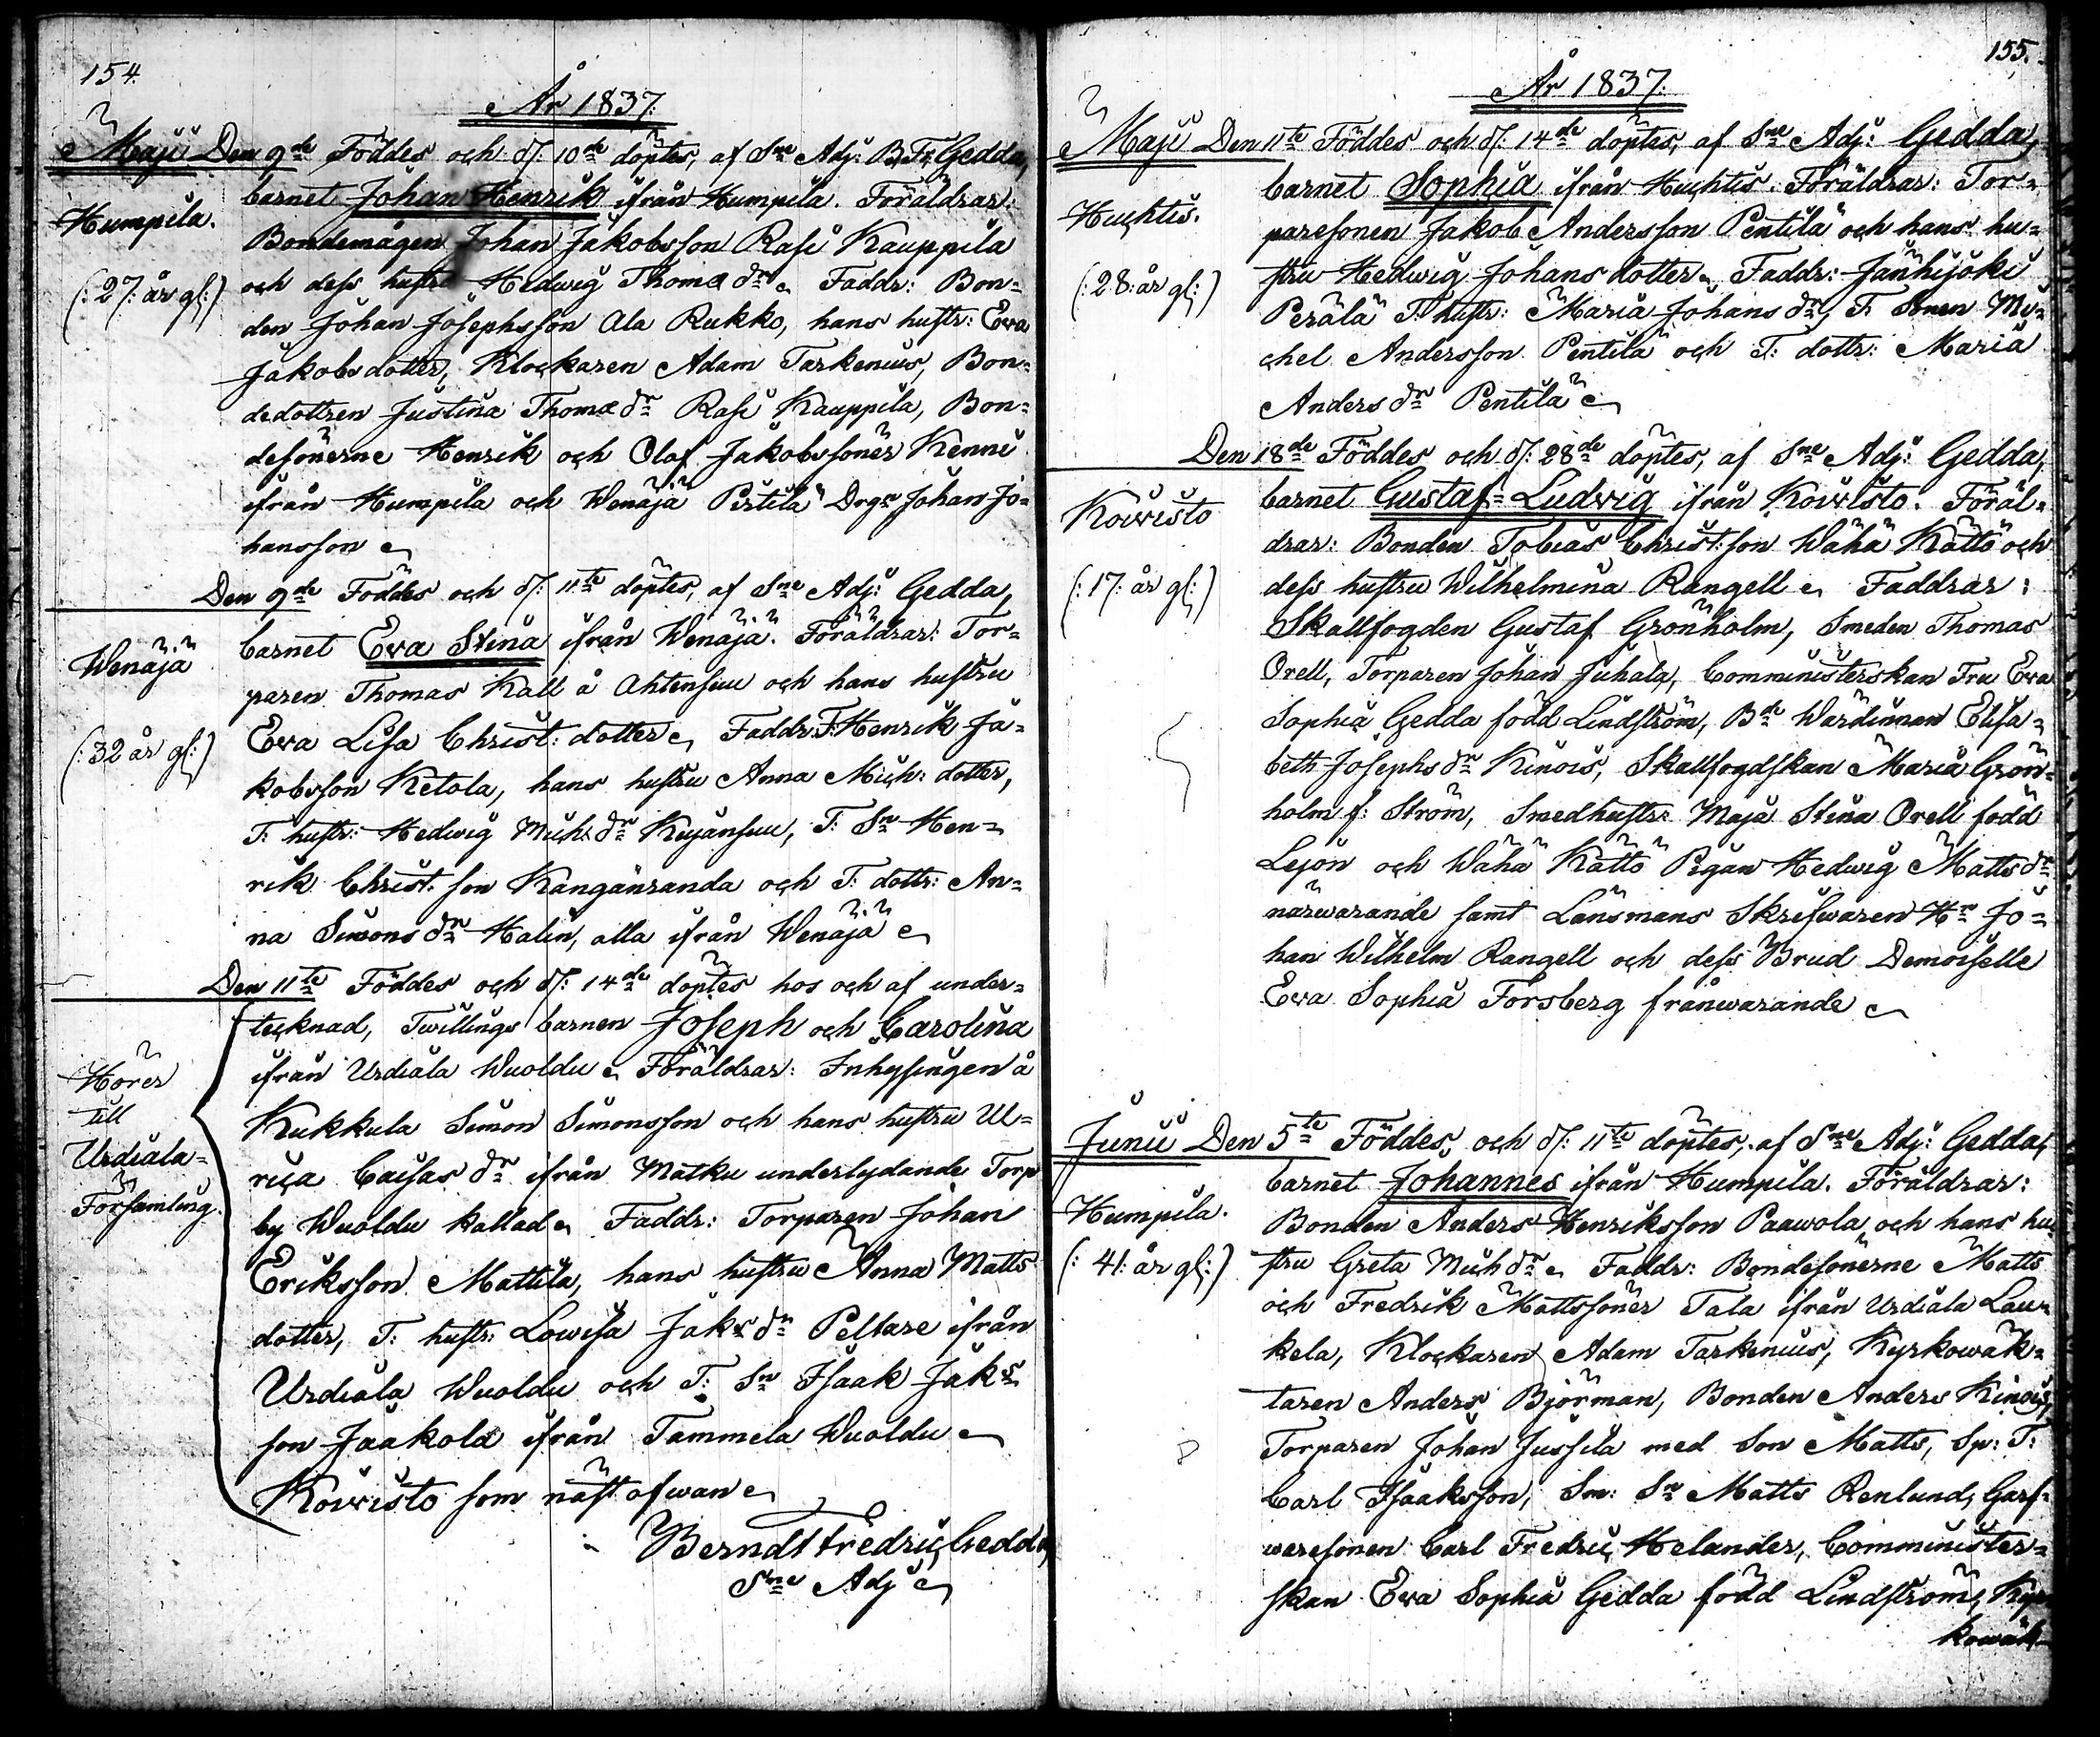 154.
År 1837.
Maji Den 9de Föddes och d: 10de döptes, af Sne Adj: B. Fr. Gedda,
Humpila.
(: 27: år gl:)
barnet Johan Henrik ifrån Humpila. Föräldrar:
Bondemågen Johan Jakobsson Rasi Kauppila
och dess hustr: Hedwig Thomæ dr. Faddr: Bon=
den Johan Josephsson Ala Rukko, hans hustr: Eva
Jakobsdotter, Klockaren Adam Tarkenius, Bon=
dedottren Justina Thomæ dr Rasi Kauppila, Bon=
desönerne Henrik och Olof Jakobssöner Kenni
ifrån Humpila och Wenäjä Pirtilä Drgn Johan Jo=
hansson
Den 9de Föddes och d: 11te döptes, af Sne Adj: Gedda,
Wenäjä
(: 32 år gl:)
barnet Eva Stina ifrån Wenäjä. Föräldrar: Tor=
paren Thomas Kall å Ahtensuu och hans hustru
Eva Lisa Christ: dotter. Faddr: T: Henrik Ja=
kobsson Ketola, hans hustru Anna Mich: dotter,
T: hustr: Hedwig Mich: dr Kujansuu, T: Sn Hen=
rik Christ. son Kanganranda och T: dottr: An=
na Simons dr Halin, alla ifrån Wenäjä
Den 11te Föddes och d: 14de döptes hos och af under=
Hörer
till
Urdiala=
Församling.
tecknad, Twillings barnen Joseph och Carolina
ifrån Urdiala Wuoldu. Föräldrar: Inhysingen å
Kukkula Simon Simonsson och hans hustru Ul=
rica Caisas dr ifrån Matku underlydande Torp
by Wuoldu kallad. Faddr: Torparen Johan
Eriksson Mattila, hans hustru Anna Matts
dotter, T: hustr: Lowisa Jaks dr Peltare ifrån
Urdiala Wuoldu och T: Sn Isaak Jaks
son Jaakola ifrån Tammela Wuoldu
Koivisto som näst ofwan
Berndt Fredric Gedda
Sne Adj
155.
År 1837.
Maji Den 11te Föddes och d: 14de döptes, af Sne Adj: Gedda,
Huchtis.
(: 28: år gl:)
barnet Sophia ifrån Huchtis. Föräldrar: Tor=
paresonen Jakob Andersson Pentilä och hans hu=
stru Hedwig Johans dotter. Faddr: Jänhijoki
Perälä T: hustr: Maria Johans dr, T. Sonen Mi=
chel Andersson Pentilä och T: dottr: Maria
Anders dr Pentilä
Den 18de Föddes och d: 28de döptes, af Sne Adj: Gedda,
Koivisto
(: 17: år gl:)
barnet Gustaf=Ludvig ifrån Koivisto. Föräl=
drar: Bonden Tobias Christ:son Wähä Kättö och
dess hustru Wilhelmina Rangell. Faddrar:
Skallfogden Gustaf Grönholm, Smeden Thomas
Orell, Torparen Johan Juhala, Comministerskan Fru Eva
Sophia Gedda född Lindström, Bde Wärdinnan Elisa=
beth Josephs dr Kinois, Skallfogdskan Maria Grön=
holm f: Ström, Smedhustr: Maja Stina Orell född
Lejon och Wähä Kättö Pigan Hedwig Matts dr
närwarande samt Länsmans Skrifwaren Hr Jo=
han Wilhelm Rangell och dess Brud Demoiselle
Eva Sophia Forsberg frånwarande
Junii Den 5te Föddes, och d: 11te döptes, af Sne Adj: Gedda,
Humpila.
(: 41: år gl:)
barnet Johannes ifrån Humpila. Föräldrar:
Bonden Anders Henriksson Paawola och hans hu
stru Greta Mich dr. Faddr: Bondesönerne Matts
och Fredrik Mattssöner Tala ifrån Urdiala Lau=
kela, Klockaren Adam Tarkenius, Kyrkowäk=
taren Anders Björman, Bonden Anders Kinois,
Torparen Johan Jussila med Son Matts, Sp: T:
Carl Isaaksson, Sm: Sn Matts Renlund, Garf=
waresonen Carl Fredric Helander, Comminister=
skan Eva Sophia Gedda född Lindström, Kyr
kowäk